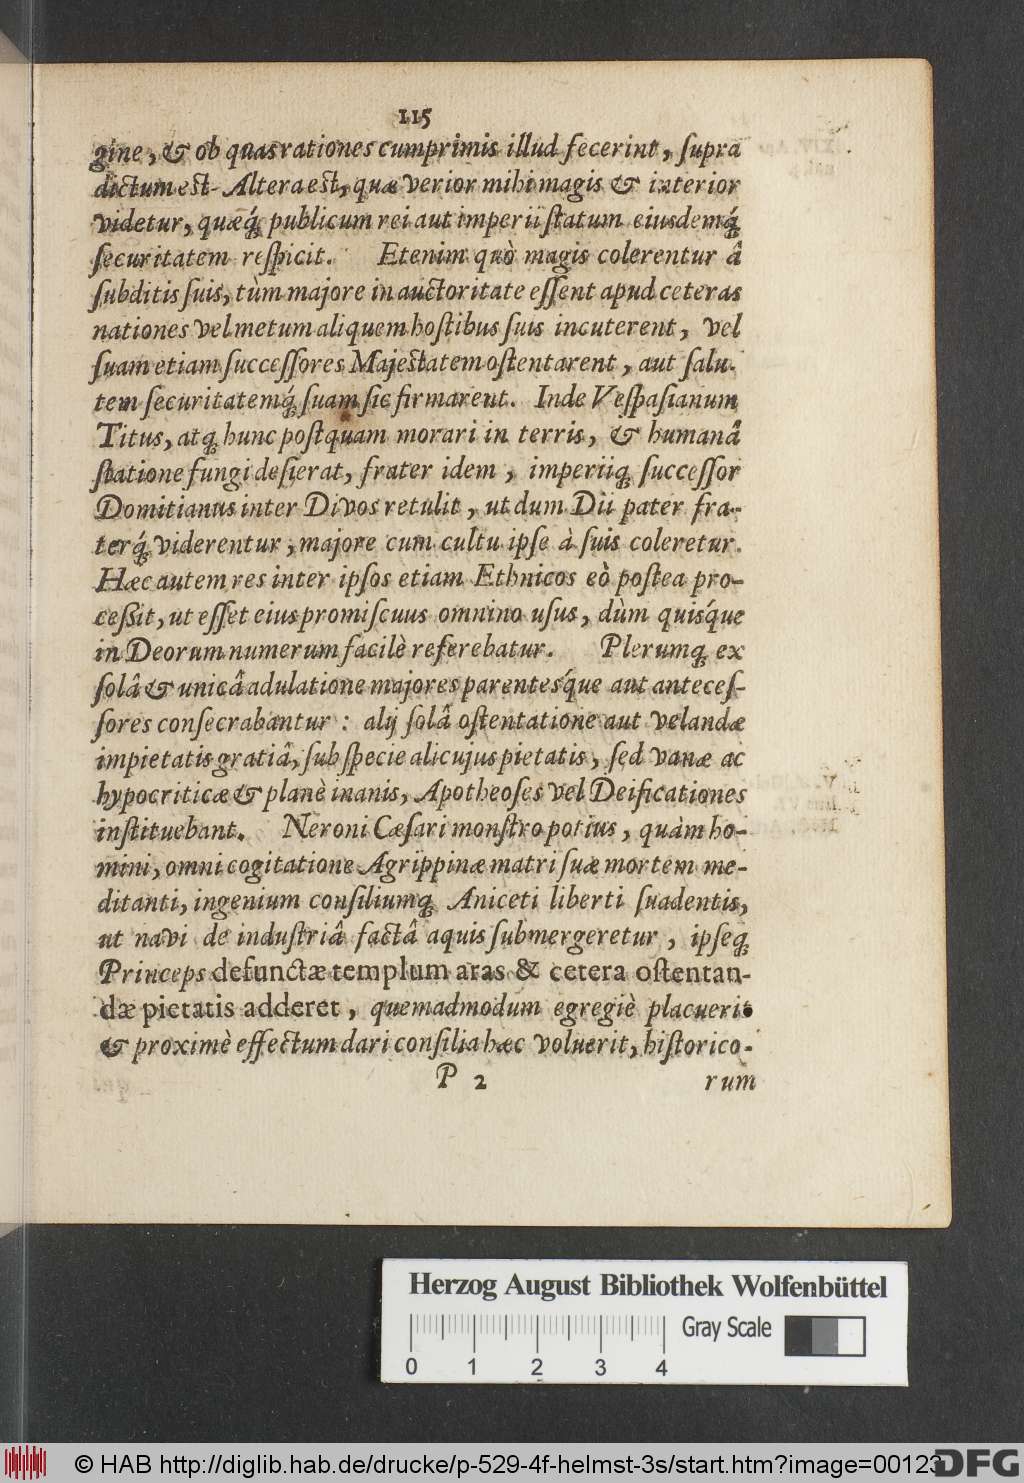 115
gine, & ob quas rationes cumprimis illud fecerint, ſupra
dictum est. Altera est, quæ verior mihi magis & interior
videtur, quæq́; publicum rei aut imperii ſtatum eiusdemq́;
ſecuritatem reſpicit. Etenim quò magis colerentur â
ſubditis ſuis, tùm majore in auctoritate eſſent apud ceteras
nationes vel metum aliquem hoſtibus ſuis incuterent, vel
ſuam etiam ſucceſſores Majestatem oſtentarent, aut ſalu-
tem ſecuritatemq́; ſuam ſic firmarent. Inde Veſpaſianum
Titus, atq; hunc poſtquam morari in terris, & humanâ
ſtatione fungi deſierat, frater idem, imperiiq; ſucceſſor
Domitianus inter Divos retulit, ut dum Dii pater fra-
terq́; viderentur, majore cum cultu ipſe à ſuis coleretur.
Hæc autem res inter ipſos etiam Ethnicos eò poſtea pro-
ceßit, ut eſſet eius promiſcuus omnino uſus, dùm quisq́ue
in Deorum numerum facilè referebatur. Plerumq; ex
ſolâ & unicâ adulatione majores parentesq́ue aut anteceſ-
ſores conſecrabantur: alij ſolâ oſtentatione aut velandæ
impietatis gratiâ, ſub ſpecie alicujus pietatis, ſed vanæ ac
hypocriticæ & planè inanis, Apotheoſes vel Deificationes
inſtituebant. Neroni Cæſari monſtro potius, quàm ho-
mini, omni cogitatione Agrippinæ matri ſuæ mortem me-
ditanti, ingenium conſiliumq; Aniceti liberti ſuadentis,
ut navi de induſtriâ factâ aquis ſubmergeretur, ipſeq;
Princeps defunctæ templum aras & cetera oſtentan-
dæ pietatis adderet, quemadmodum egregiè placuerit
& proximè effectum dari conſilia hæc voluerit, hiſtorico-
P 2 rum
Herzog August Bibliothek Wolfenbüttel
Gray Scale
0 1 2 3 4
© HAB http://diglib.hab.de/drucke/p-529-4f-helmst-3s/start.htm?image=00123
DFG